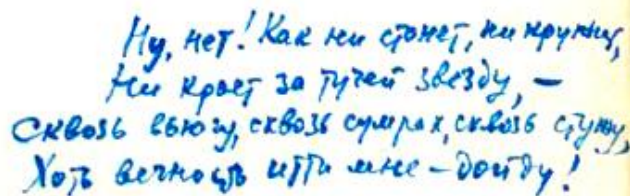 Ну, нет! Как ни стонет, ни кружит,
Ни кроет за тучей звезду, —
Сквозь вьюгу, сквозь сумрак, сквозь стужу,
Хоть вечность итти мне – дойду!